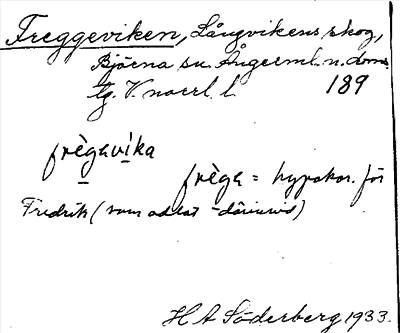 Freggeviken, Långvikens skog,
Bjärna sn. Ångerml. n. doms.
lg. V. norrl. l. 189
frègavìka
frèga = hypokor. för
Fredrik (som adlat
H A Söderberg 1933.